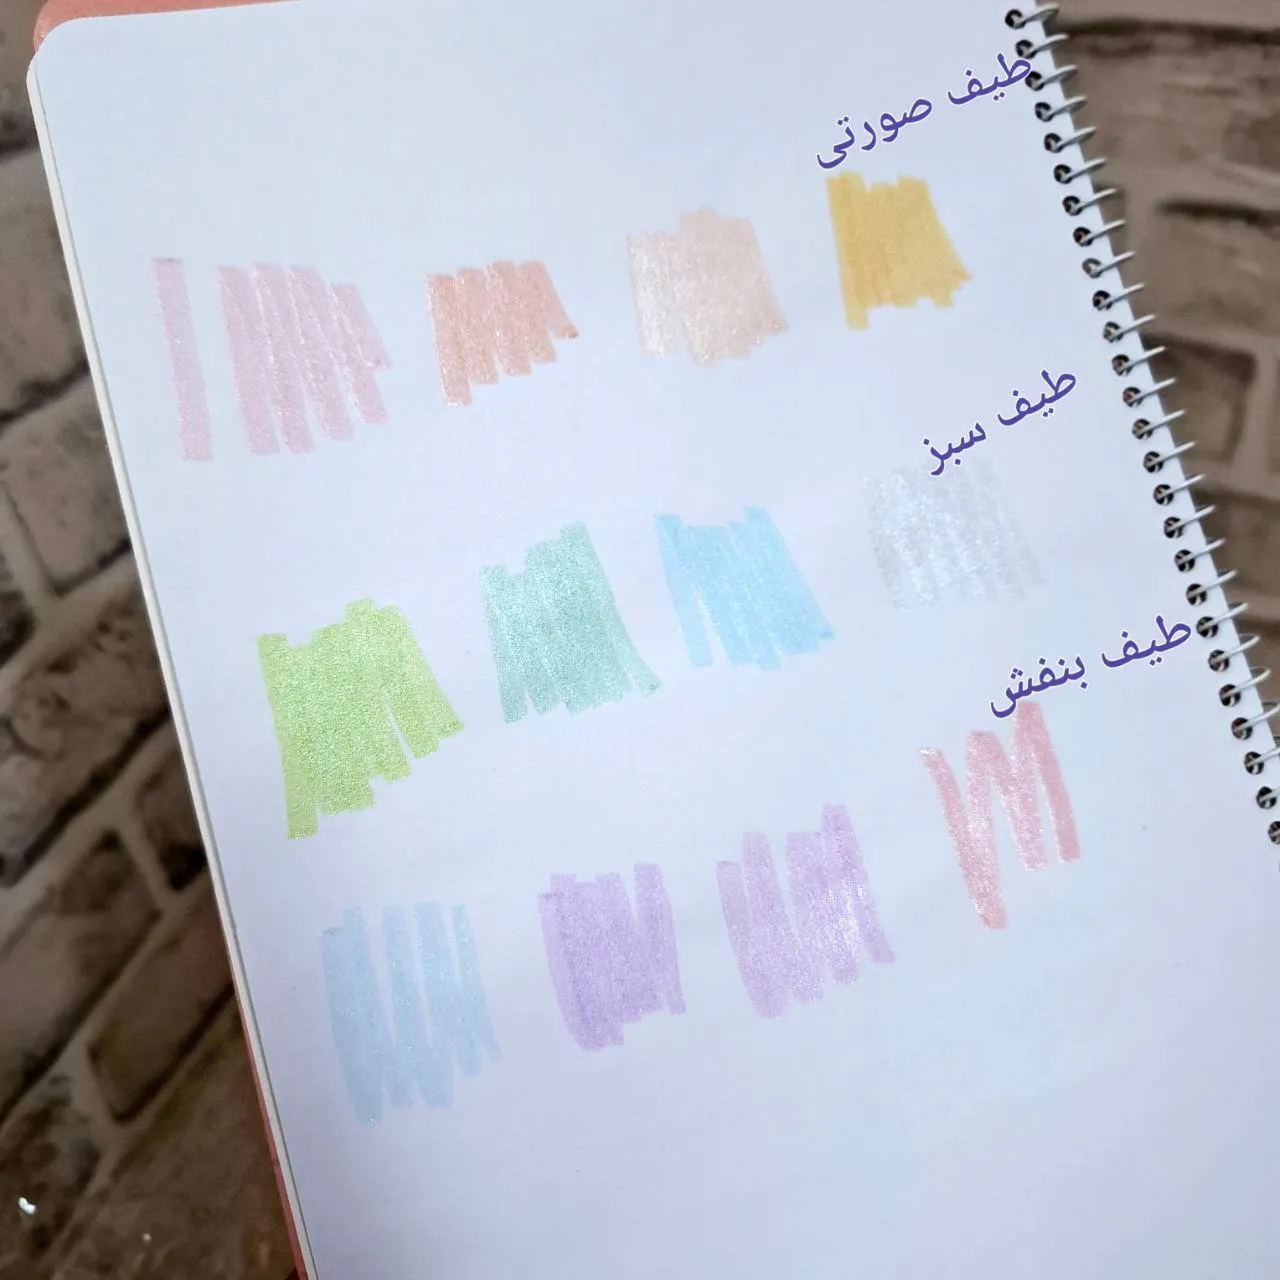 طیف صورتی
طیف سبز
طیف بنفش